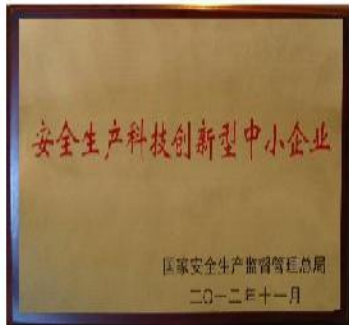 安全生产科技创新型中小企业
国家安全生产监督管理总局
二〇一二年十一月